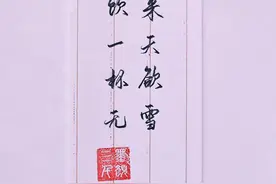 来天欲雪
饮一杯无